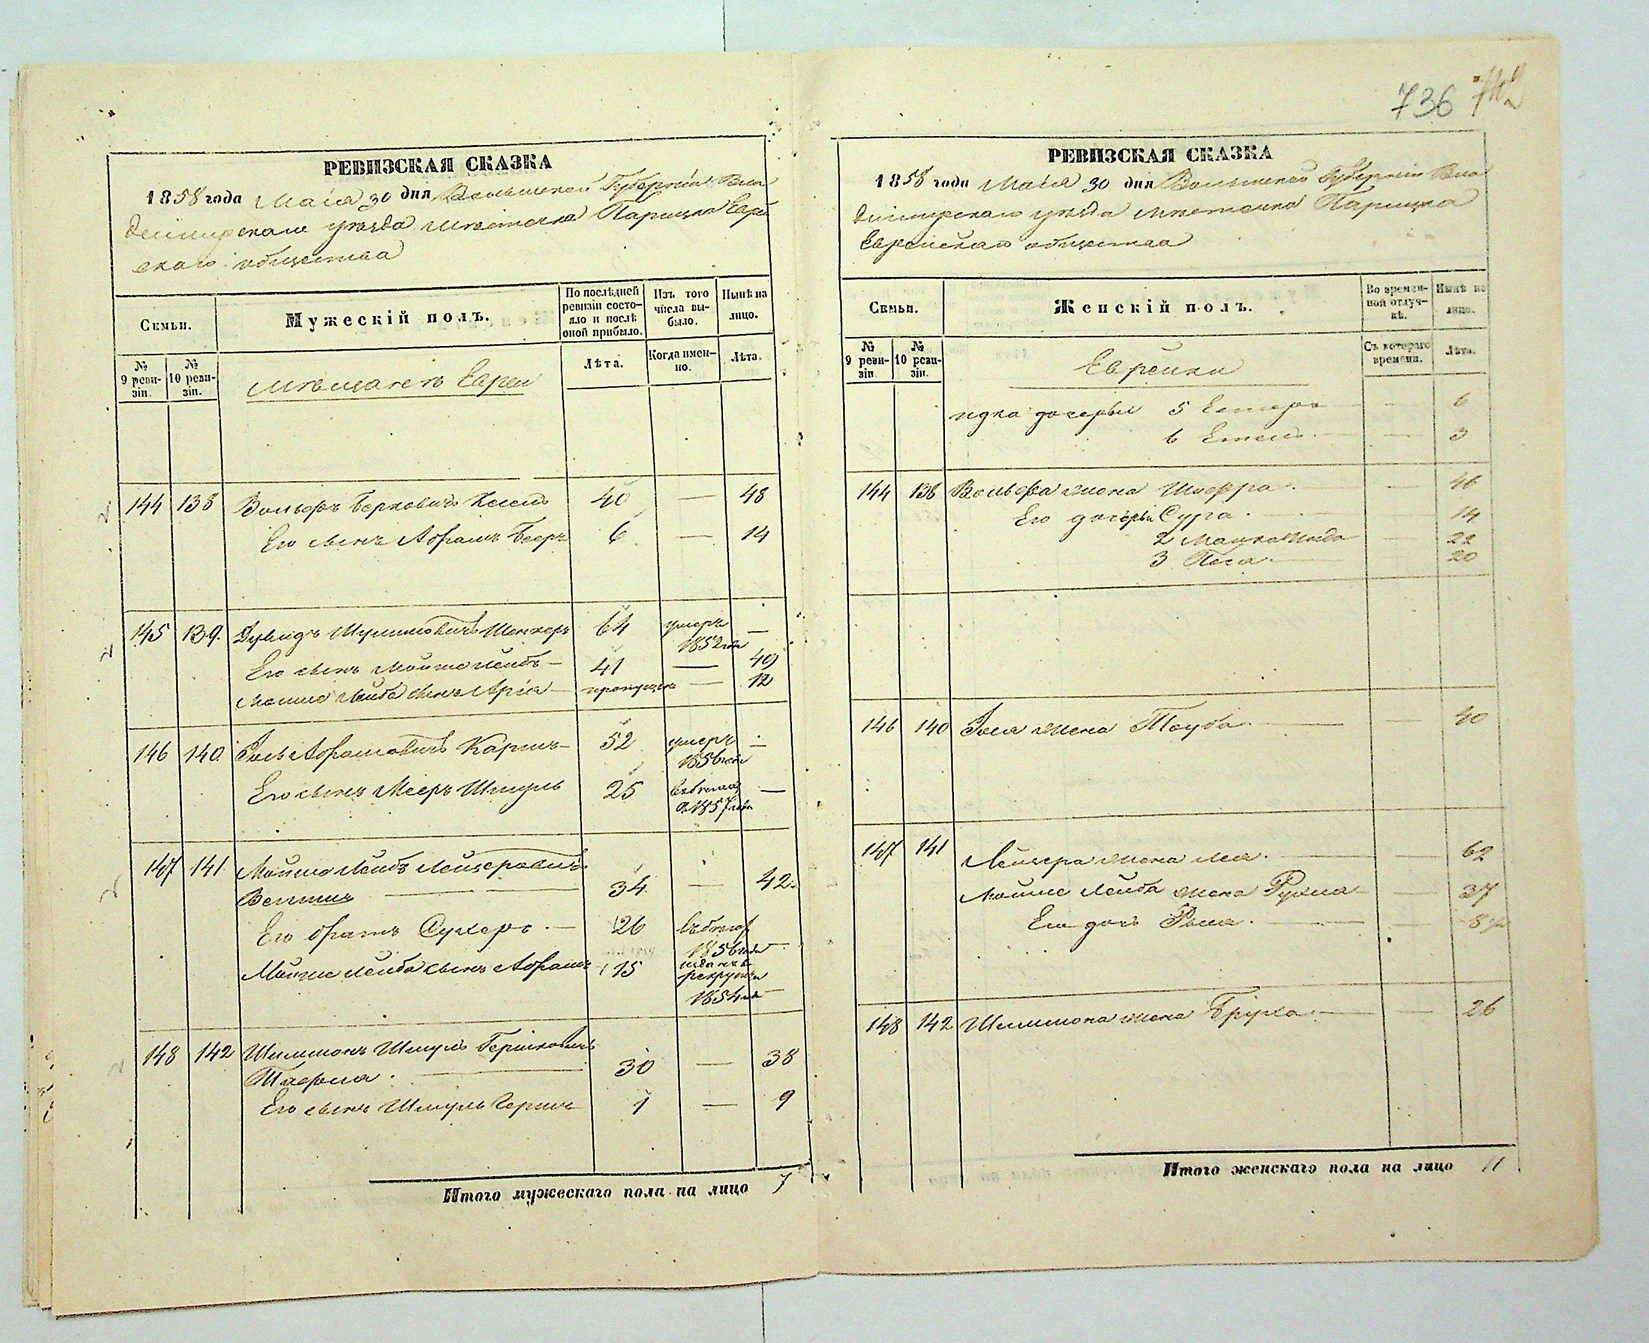 736
РЕВИЗСКАЯ СКАЗКА
1858 года Маія 30 дня Волынской Губерніи Вла
димирскаго уѣзда мѣстечка Парицка Еврей
скаго общества
Семьи.
Мужескій полъ.
По послѣдней ревизіи состо-
яло и послѣ оной прибыло.
Изъ того числа вы-
было.
Нынѣ на лицо.
№ 9 реви-
зіи.
№ 10 реви-
зіи.
Мѣщане Евреи
Лѣта.
Когда имен-
но.
Лѣта.
144 138 Вольфъ Берковичъ 40 — 48
Его сынъ Абрамъ Беръ 6 — 14
145 139 Дувидъ Шулимовичъ Шенкеръ 64 умеръ —
1852 года
Его сынъ Мойше Лейбъ — 41 — 49
Мойше Лейба сынъ Арія — пропущен — 12
146 140 Іось Абрамовичъ 52 умеръ —
1856 года
Его сынъ Мееръ Шмуль 25 —
1857 года
147 141 Мойше Лейбъ Лейзеровичъ
34 — 42
Его братъ Сухеръ — 26
1856 года —
Мойше Лейба сынъ Абрамъ 15
рекруты
1854 года —
148 142 Шлимонъ Шмуль Гершковичъ
30 — 38
Его сынъ Шмуль Гершъ 1 — 9
Итого мужескаго пола на лицо 7
РЕВИЗСКАЯ СКАЗКА
1858 года Маія 30 дня Волынской Губерніи Вла
димирскаго уѣзда мѣстечка Парицка
Еврейскаго общества
Семьи.
Женскій полъ.
Во времен-
ной отлуч-
кѣ.
Нынѣ на лицо.
№ 9 реви-
зіи.
№ 10 реви-
зіи.
Еврейки
Съ котораго времени.
Лѣта.
дочерьи 5 Естеръ — 6
6 Етель — 3
144 138 Вольфа жена Шифра — 46
Его дочерьи Сура — 14
2 — 22
3 Песа — 20
146 140 Іося жена Тауба — 40
147 141 Лейзера жена Лея — 62
Мойше Лейба жена Рухля — 37
Его дочь — 8
148 142 Шлимона жена Бруха — 26
Итого женскаго пола на лицо 11